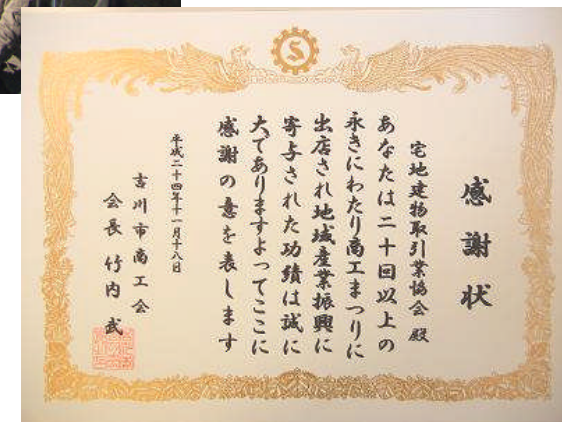 感謝状
宅地建物取引業協会殿
あなたは二十回以上の
永きにわたり商工まつりに
出店され地域産業振興に
寄与された功績は誠に
大でありますよってここに
感謝の意を表します
平成二十四年十一月十八日
吉川市商工会
会長竹内武